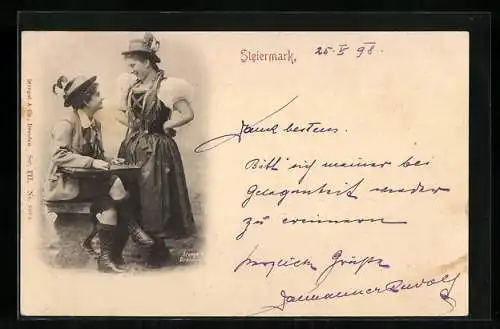 Steiermark,
25. V 98.
Dank bestens.
Bitt' sich meiner bei
Gelegenheit wieder
zu erinnern
herzliche Grüße
Rudolf
Stengel & Co., Dresden. Ser. III. No.